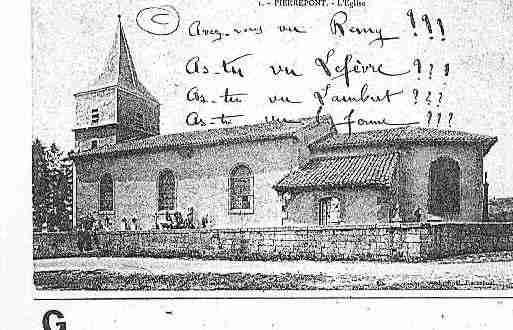 1. - PIERREPONT. - L'Eglise
C
Avez-vous vu Remy !!!
As-tu vu Lefèvre ???
As-tu vu Lambert ???
As-tu vu la forme ???
G